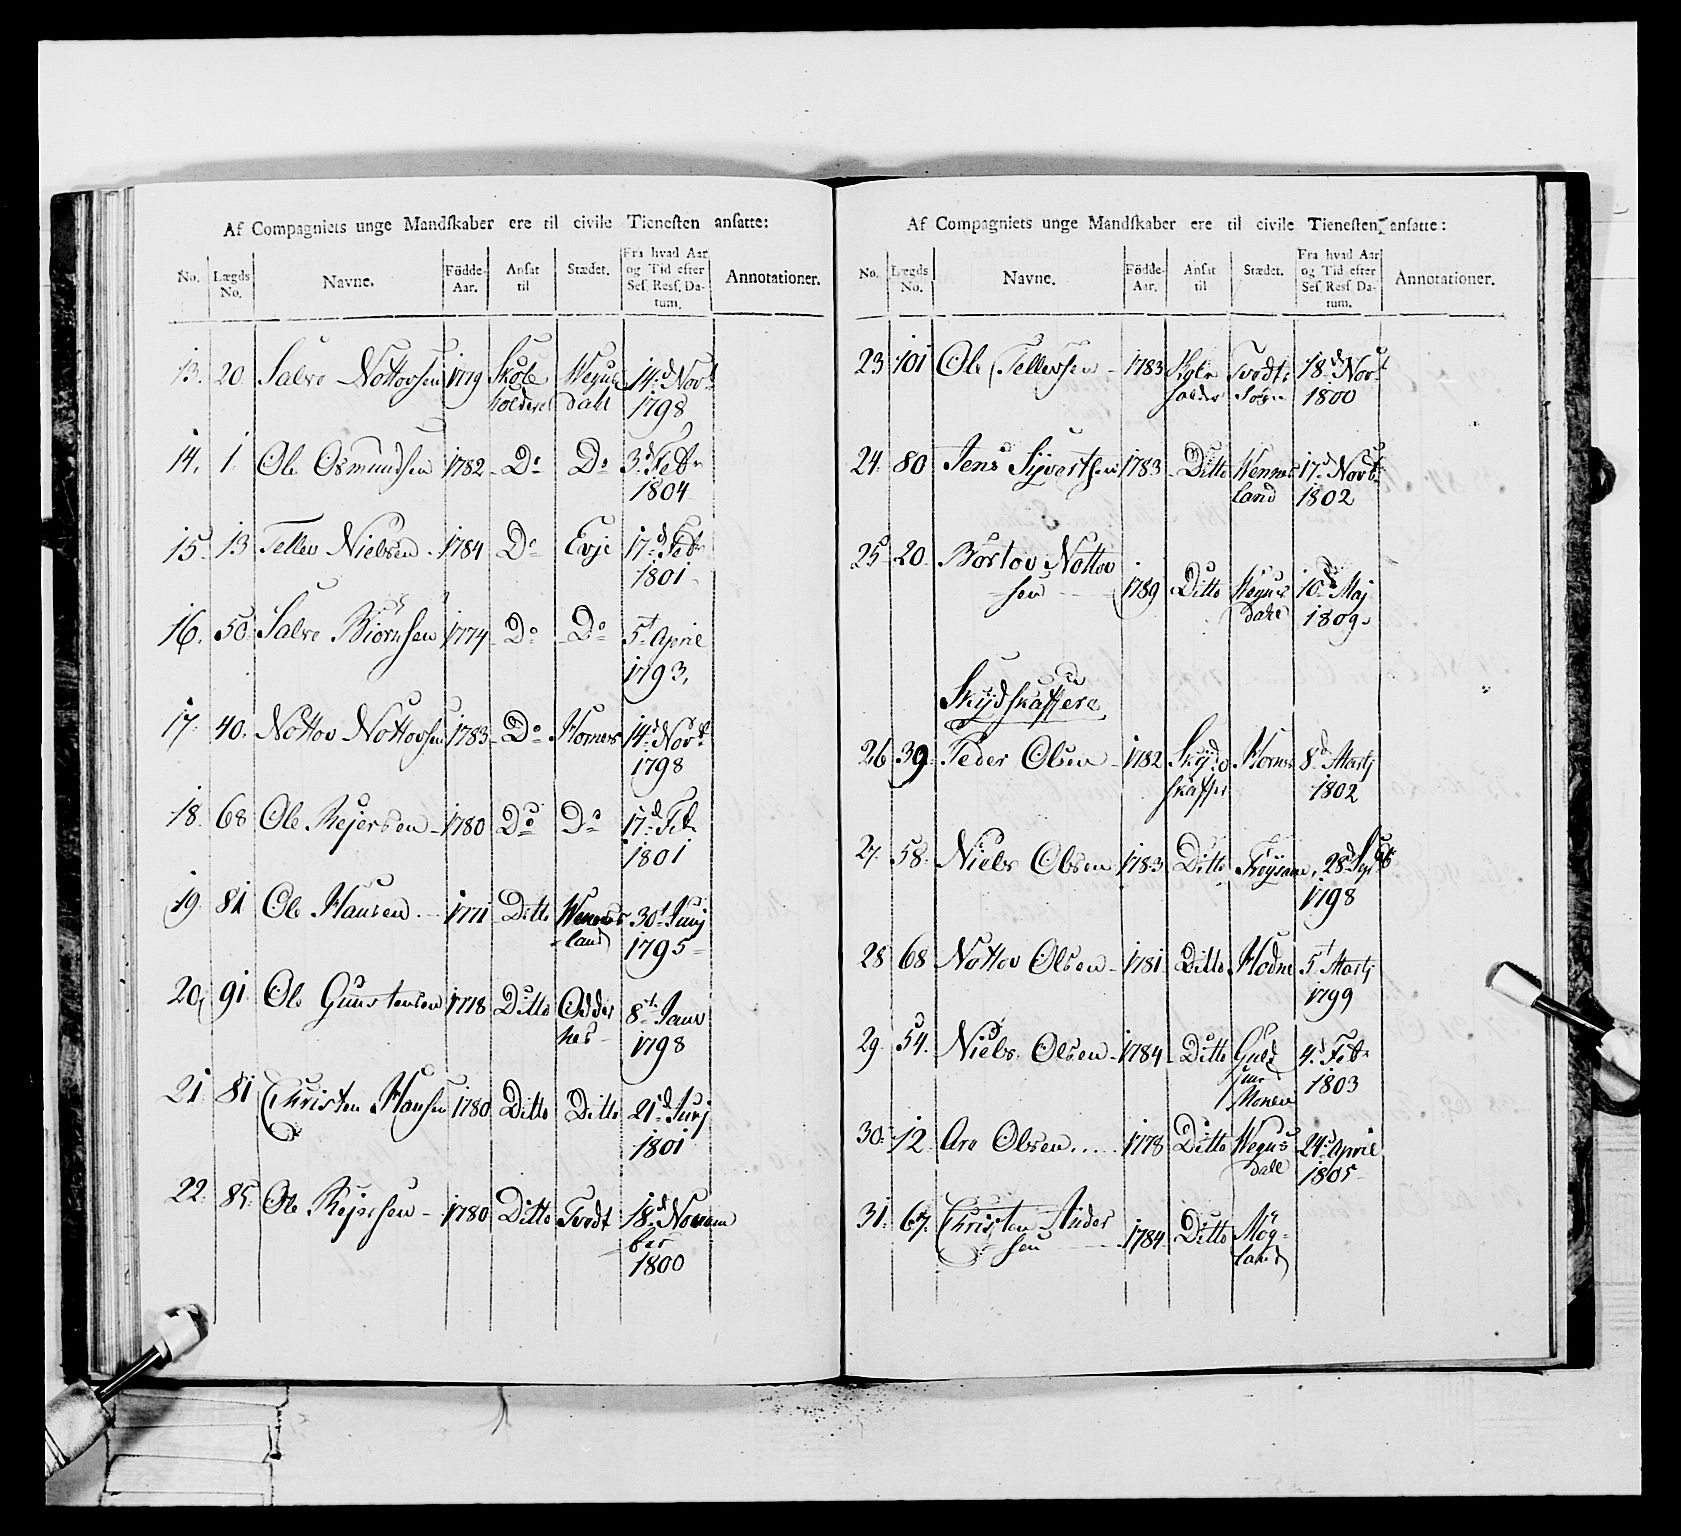 Af Compagniets unge Mandſkaber ere til civile Tieneſten anſatte:
No. Lægds No. Navne. Födde-Aar. Anſat til Stædet. Fra hvad Aar og Tid efter Seſ. Reſſ. Datum. Annotationer.
13. 20 Salve Nottovsen 1779 Skole Wegus 14.d Novt
holdere dahl 1798
14. 1. Ole Osmundsen 1782 Do Do 3.d Febr
1804
15. 13 Tellev Nielsen 1784 Do Evje 17.d Febr
1801
16. 50 Salve Biörnsen 1774 Do Do 5t April
1793.
17. 40. Nottov Nottovsen 1783 Do Hornes 14.d Novt
1798
18. 68 Ole Rejersen 1780 Do Do 17.d Feb
1801
19. 81 Ole Hansen 1771 Ditto Wennes 30t Junj
land 1795
20. 91 Ole Gunstensen 1778 Ditto Odder 8t Janv
nes 1798
21. 81 Christen Hansen 1780 Ditto Ditto 21.d Junj
1801
22. 85. Ole Rejersen 1780 Ditto Tvedt 18.d Novem
ber
1800
Af Compagniets unge Mandſkaber ere til civile Tieneſten anſatte:
No. Lægds No. Navne. Födde-Aar. Anſat til Stædet. Fra hvad Aar og Tid efter Seſ. Reſſ. Datum. Annotationer.
23 101 Ole Tellevsen 1783 Skole Tvedts 18.d Novt
holder Sogn 1800
24. 80 Jens Syvertsen 1783 Ditto Wennes 17.d Novbr
land 1802
25 20. Börtov Nottov
sen 1789 Ditto Wegus 10.d Maj
dahl 1809.
Skydskaffere
26 39 Peder Olsen 1782 Skyds Hornes 8.d Martj
skaffer 1802
27. 58. Niels Olsen 1783 Ditto 28.d Sept
1798
28 68 Nottov Olsen 1781 Ditto Hodne 5t Martj
1799
29. 54. Niels Olsen 1784 Ditto 4.d Febr
1803
30. 12 Are Olsen 1778 Ditto Wegus 24.d April
dall 1805
31. 67. Christen Ander
sen 1784 Ditto Mög-
land